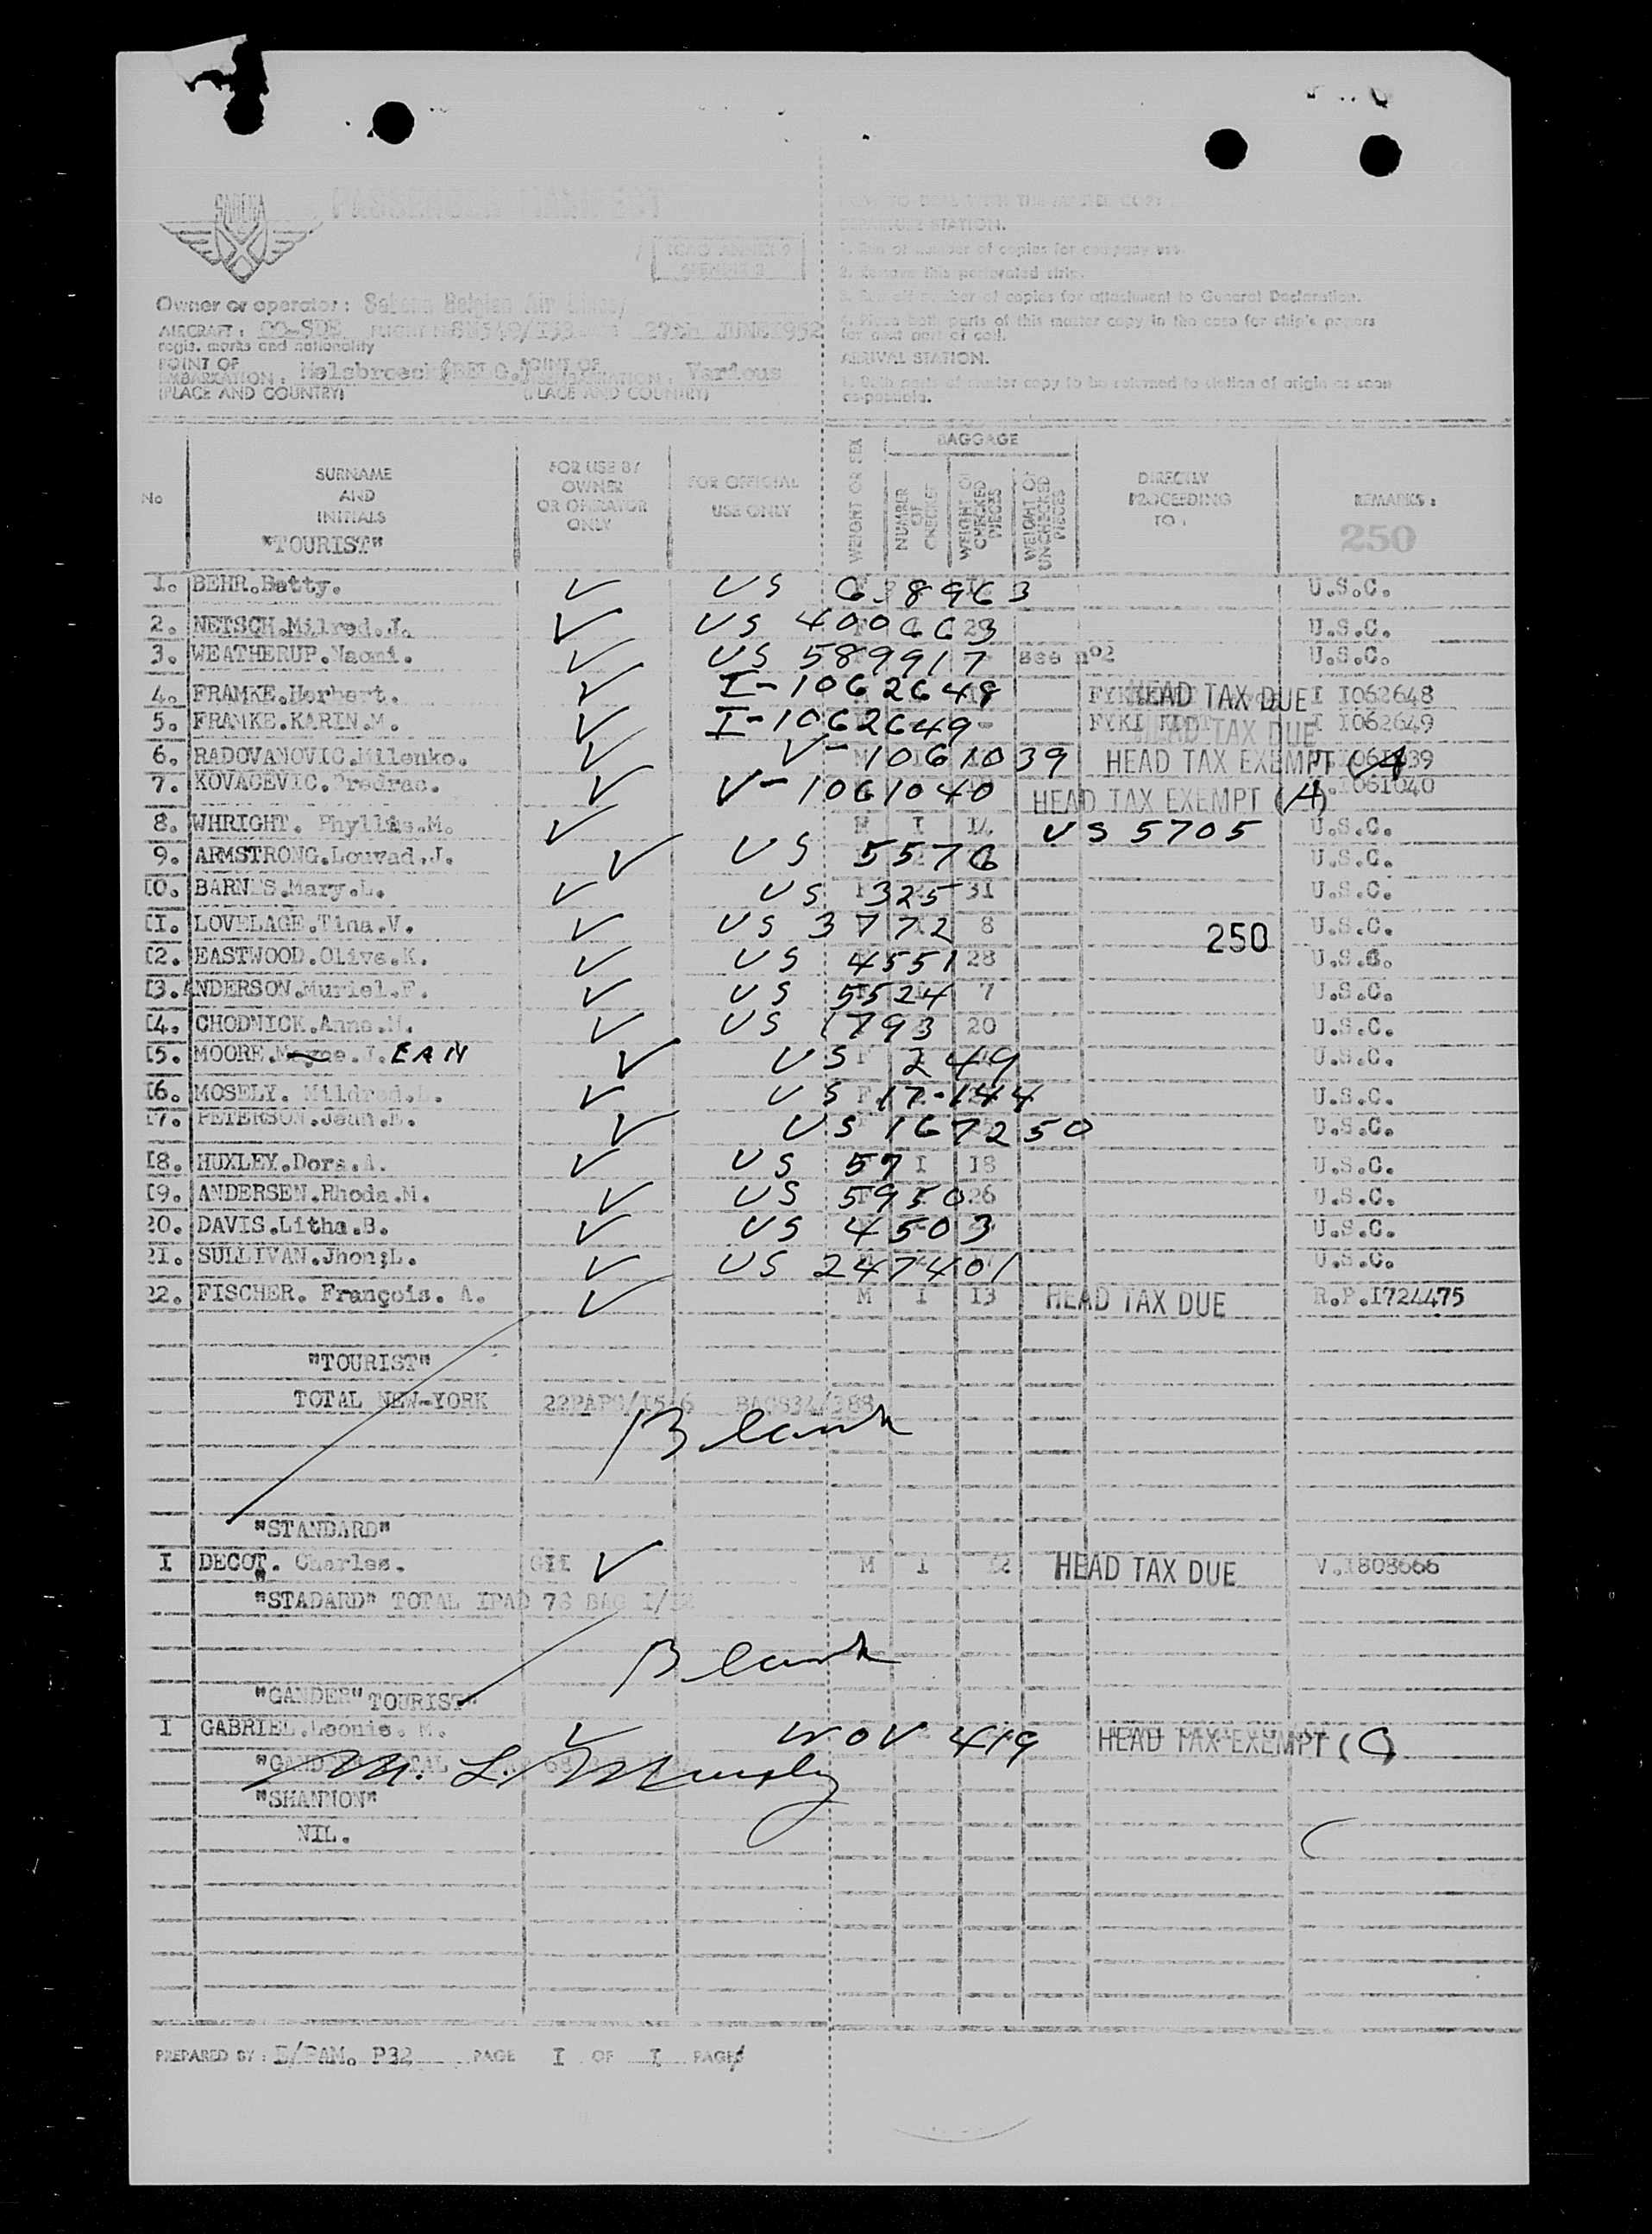 SABENA
PASSENGER MANIFEST
ICAO ANNEX 9
DEPARTURE STATION.
1. Run of number of copies for company use.
2. Remove this perforated strip.
3. Run off number of copies for attachment to General Declaration.
4. Place both parts of this master copy in the case for ship's papers
for next port of call.
ARRIVAL STATION.
1. Both parts of master copy to be returned to station of origin as soon
as possible.
Owner or operator: Sabena Belgian Air Lines/
AIRCRAFT: OO-SDE 27th JUNE 1952
regis. marks and nationality
POINT OF EMBARKATION: Melsbroeck (BELG.) POINT OF DISEMBARKATION: Various
(PLACE AND COUNTRY) (PLACE AND COUNTRY)
No SURNAME AND INITIALS FOR USE BY OWNER OR OPERATOR ONLY FOR OFFICIAL USE ONLY WEIGHT OR SEX BAGGAGE NUMBER OF CHECKED WEIGHT OF CHECKED PIECES WEIGHT OF UNCHECKED PIECES DIRECTLY PROCEEDING TO: REMARKS:
"TOURIST" 250
1. BEHR.Betty. ✓ US 638963 U.S.C.
2. NETSCH.Milred.J. ✓ US 400663 23 U.S.C.
3. WEATHERUP.Naomi. ✓ US 589917 see n°2 U.S.C.
4. FRAMKE.Herbert. ✓ I-1062648 HEAD TAX DUE I I062648
5. FRAMKE.KARIN.M. ✓ I-1062649 HEAD TAX DUE I I062649
6. RADOVANOVIC.Milenko. ✓ V-1061039 HEAD TAX EXEMPT (A)
7. KOVACEVIC.Predrac. ✓ V-1061040 HEAD TAX EXEMPT (A) I061040
8. WHRIGHT. Phyllis.M. ✓ M I 14 US 5705 U.S.C.
9. ARMSTRONG.Louvad.J. ✓ US 5576 U.S.C.
I0. BARNES.Mary.L. ✓ US 325 31 U.S.C.
II. LOVELACE.Tina.V. ✓ US 3772 8 250 U.S.C.
I2. EASTWOOD.Olive.K. ✓ US 4551 28 U.S.C.
I3. ANDERSON.Muriel.F. ✓ US 5524 7 U.S.C.
I4. CHODNICK.Anna.M. ✓ US 1793 20 U.S.C.
I5. MOORE.Mayne.J.EAN ✓ US 249 U.S.C.
I6. MOSELY. Mildred.L. ✓ US 17-144 U.S.C.
I7. PETERSON.Jean.E. ✓ US 167250 U.S.C.
I8. HUXLEY.Dora.A. ✓ US 57 I 18 U.S.C.
I9. ANDERSEN.Rhoda.M. ✓ US 5950 26 U.S.C.
20. DAVIS.Litha.B. ✓ US 4503 U.S.C.
2I. SULLIVAN.Jhon;L. ✓ US 247401 U.S.C.
22. FISCHER. François. A. ✓ M I I3 HEAD TAX DUE R.P.I724475
"TOURIST"
TOTAL NEW-YORK
Blank
"STANDARD"
I DECOT. Charles. ✓ M 1 HEAD TAX DUE V.1808666
"STADARD" TOTAL IPAD 78 BAG I/
Blank
"GANDER" TOURIST"
I GABRIEL.Leonie. M. ✓ WOV 419 HEAD TAX EXEMPT (C)
M. L. Murphy
"SHANNON"
NIL.
PREPARED BY: E/PAM. P32 PAGE I OF I PAGES